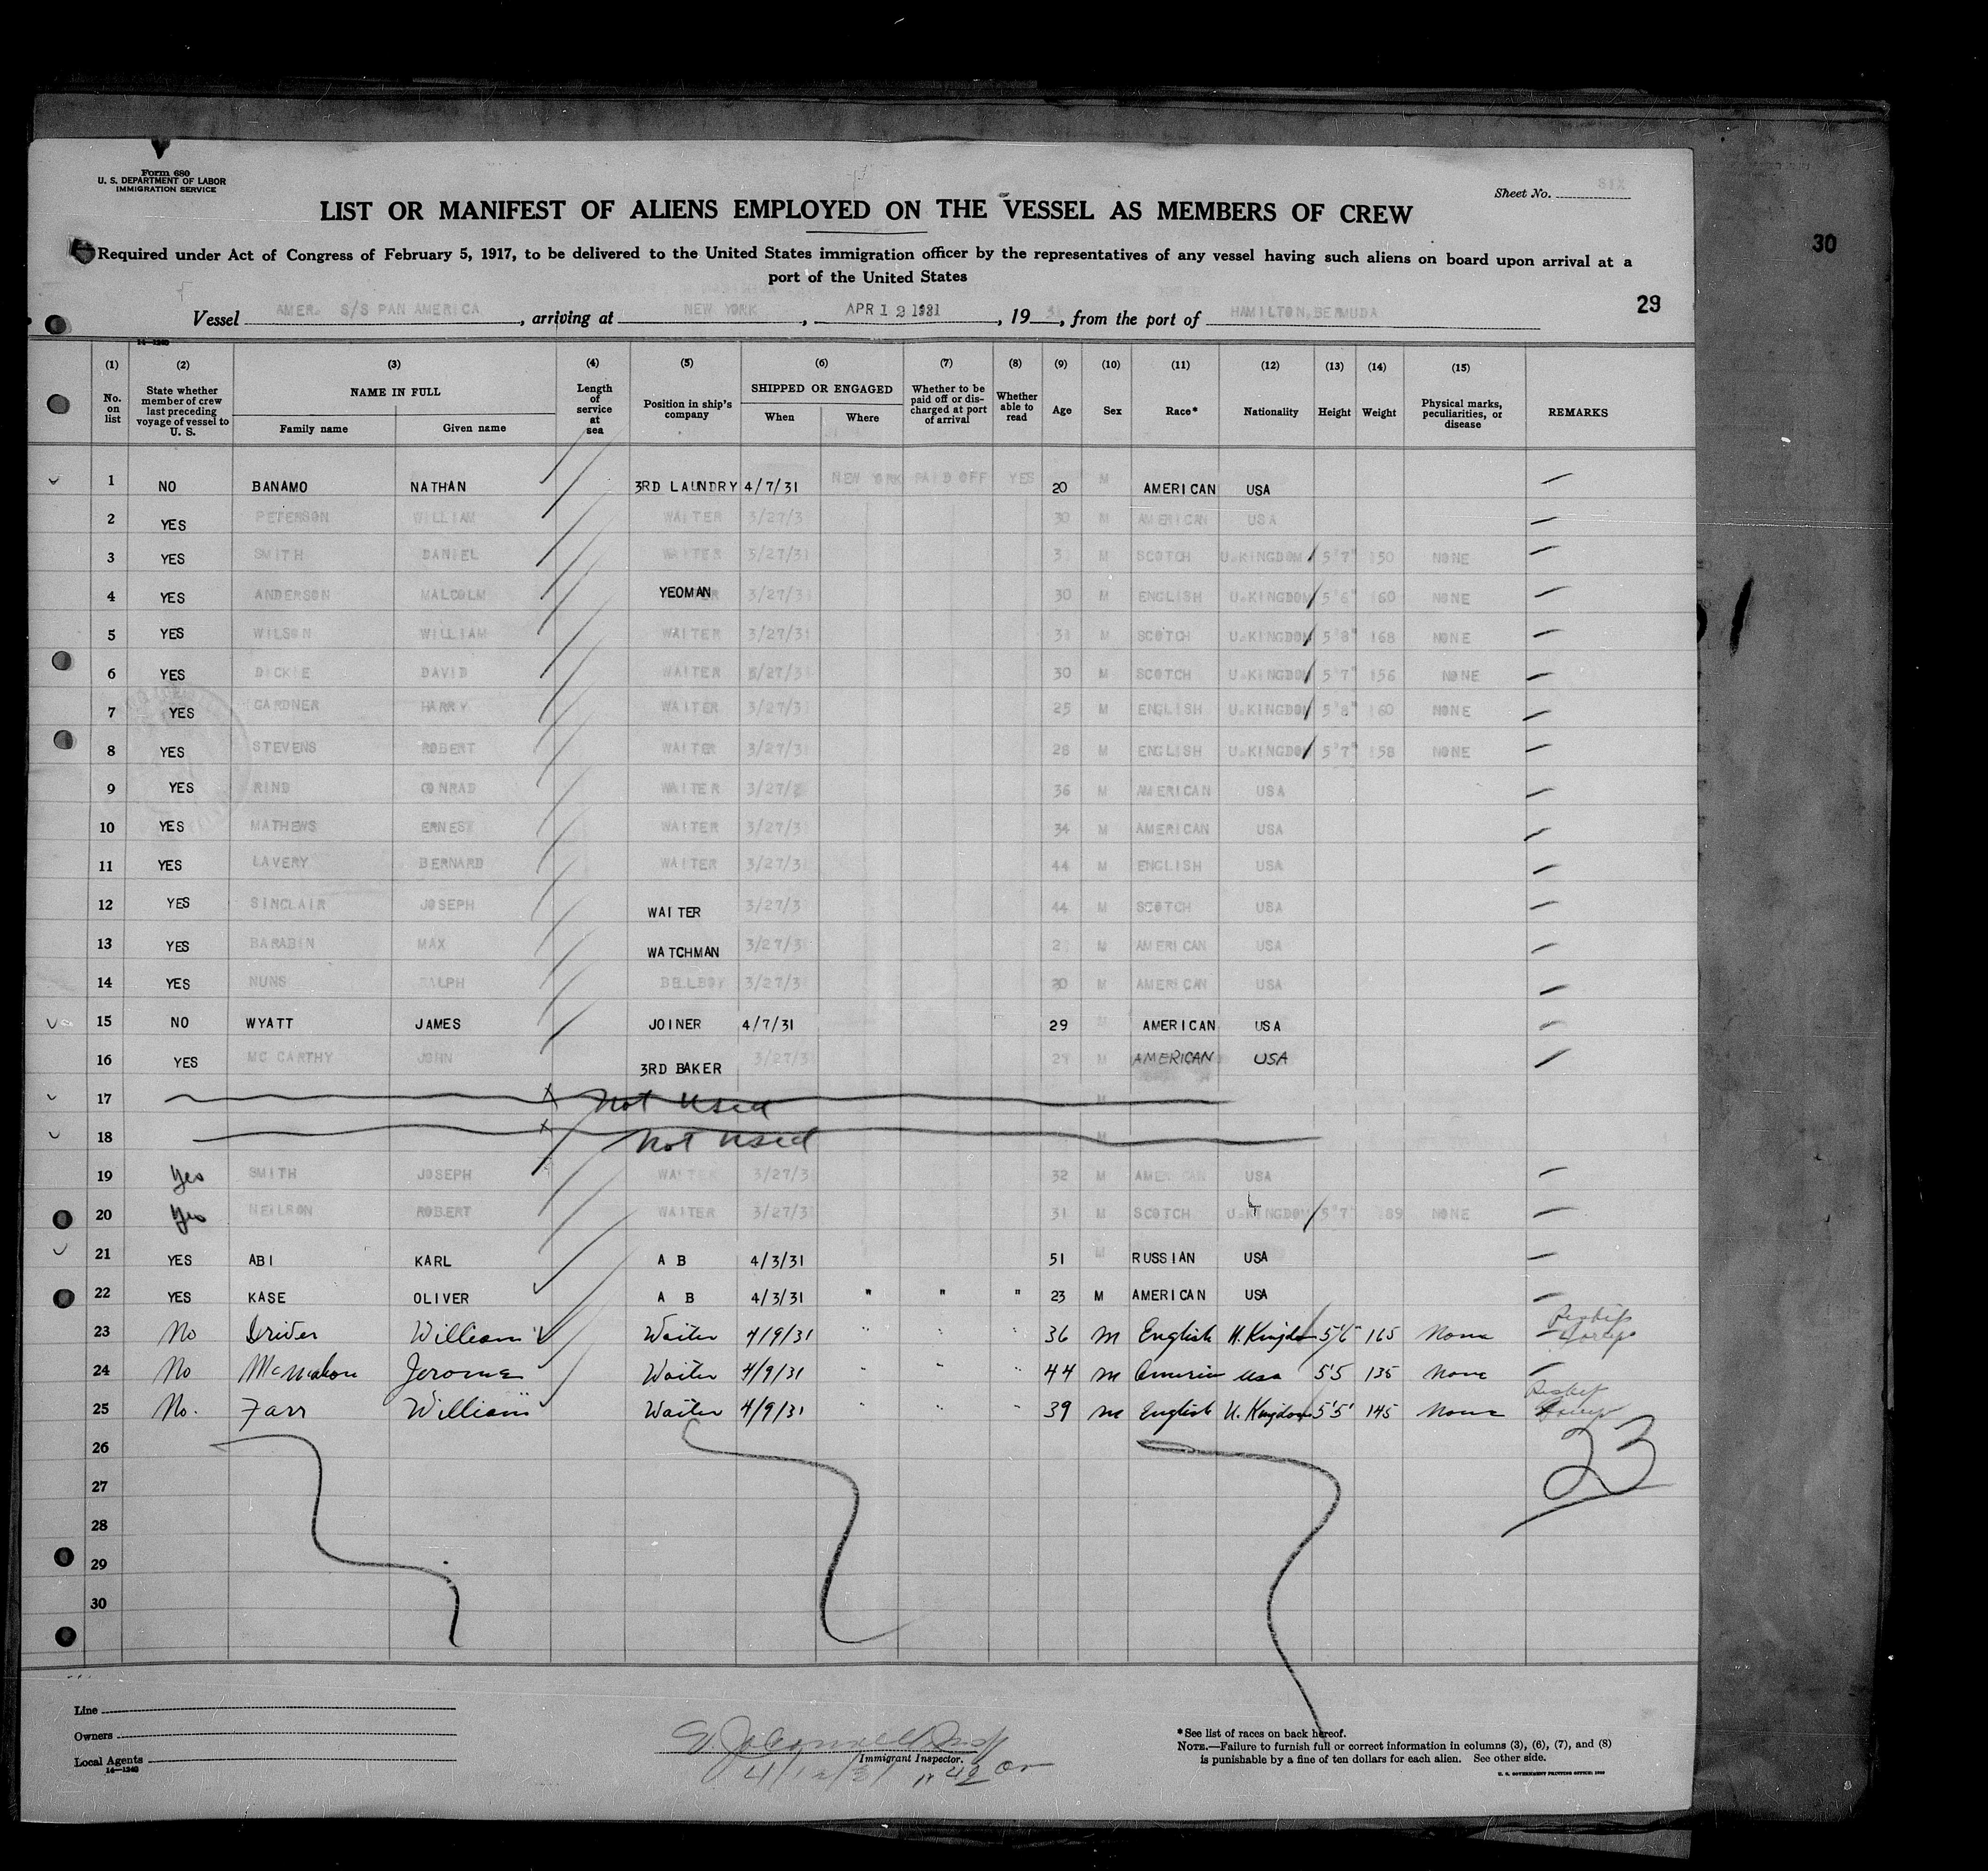 Form 680
U. S. DEPARTMENT OF LABOR
IMMIGRATION SERVICE
Sheet No. SIX
LIST OR MANIFEST OF ALIENS EMPLOYED ON THE VESSEL AS MEMBERS OF CREW
Required under Act of Congress of February 5, 1917, to be delivered to the United States immigration officer by the representatives of any vessel having such aliens on board upon arrival at a
port of the United States
30
29
Vessel AMER. S/S PAN AMERICA, arriving at NEW YORK, APR 12 1931, 19 31, from the port of HAMILTON, BERMUDA
14—1240
(1) (2) (3) (4) (5) (6) (7) (8) (9) (10) (11) (12) (13) (14) (15)
No. on list State whether member of crew last preceding voyage of vessel to U. S. NAME IN FULL Family name Given name Length of service at sea Position in ship's company SHIPPED OR ENGAGED When Where Whether to be paid off or discharged at port of arrival Whether able to read Age Sex Race* Nationality Height Weight Physical marks, peculiarities, or disease REMARKS
1 NO BANAMO NATHAN 3RD LAUNDRY 4/7/31 NEW YORK PAID OFF YES 20 M AMERICAN USA
2 YES PETERSON WILLIAM WAITER 3/27/3 30 M AMERICAN USA
3 YES SMITH DANIEL WAITER 3/27/31 3 M SCOTCH U.KINGDOM 5'7" 150 NONE
4 YES ANDERSON MALCOLM YEOMAN 3/27/3 30 M ENGLISH U.KINGDOM 5'6" 160 NONE
5 YES WILSON WILLIAM WAITER 3/27/31 31 M SCOTCH U.KINGDOM 5'8" 168 NONE
6 YES DICKIE DAVID WAITER 3/27/3 30 M SCOTCH U.KINGDOM 5'7" 156 NONE
7 YES GARDNER HARRY WAITER 3/27/3 25 M ENGLISH U.KINGDOM 5'8" 160 NONE
8 YES STEVENS ROBERT WAITER 3/27/31 28 M ENGLISH U.KINGDOM 5'7" 158 NONE
9 YES RIND CONRAD WAITER 3/27/3 36 M AMERICAN USA
10 YES MATHEWS ERNEST WAITER 3/27/3 34 M AMERICAN USA
11 YES LAVERY BERNARD WAITER 3/27/3 44 M ENGLISH USA
12 YES SINCLAIR JOSEPH WAITER 3/27/3 44 M SCOTCH USA
13 YES BARABIN MAX WATCHMAN 3/27/3 2 M AMERICAN USA
14 YES NUNS RALPH BELLBOY 3/27/3 20 M AMERICAN USA
15 NO WYATT JAMES JOINER 4/7/31 29 AMERICAN USA
16 YES MC CARTHY JOHN 3RD BAKER 3/27/3 29 M AMERICAN USA
17 Not Used M
18 Not Used M
19 Yes SMITH JOSEPH WAITER 3/27/3 32 M AMERICAN USA
20 Yes NEILSON ROBERT WAITER 3/27/3 31 M SCOTCH U.KINGDOM 5'7" 189 NONE
21 YES ABI KARL A B 4/3/31 51 M RUSSIAN USA
22 YES KASE OLIVER A B 4/3/31 " " " 23 M AMERICAN USA
23 No Driver William Waiter 4/9/31 " " " 36 M English U. Kingdom 5'6" 165 None
24 No McMahon Jerome Waiter 4/9/31 " " " 44 M American USA 5'5 135 None
25 No. Farr William Waiter 4/9/31 " " " 39 M English U. Kingdom 5'5' 145 None
26
27
28
29
30
23
Line
Owners
Local Agents
14—1240
Immigrant Inspector.
4/12/31
*See list of races on back hereof.
NOTE.—Failure to furnish full or correct information in columns (3), (6), (7), and (8)
is punishable by a fine of ten dollars for each alien. See other side.
U. S. GOVERNMENT PRINTING OFFICE: 1930